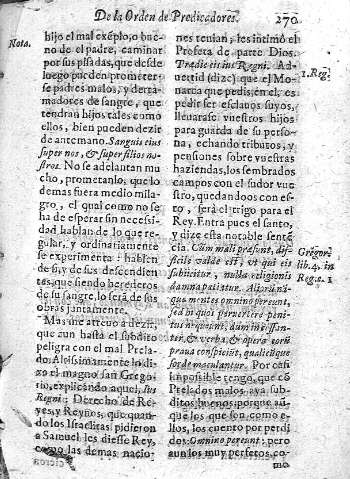 De la Orden de Predicadores.
270
Nota.
hijo el mal exẽplo, o bue-
no del padre, caminar
por sus pisadas, que desde
luego pueden prometer-
se padres malos, y derra-
madores de sangre, que
tendràn hijos tales como
ellos, bien pueden dezir
de antemano. Sanguis eius
super nos, & super filios no-
stros. No se adelantan mu-
cho, prometanlo: que lo
demas fuera medio mila-
gro, el qual como no se ha
de esperar sin necesi-
dad hablan de lo que re-
gular, y ordinariamente
se experimenta: hablen
de si, y de sus descendien-
tes, que siendo herederos
de su sangre, lo serà de sus
obras juntamente.
Mas me atreuo a dezir,
que aun hasta el subdito
peligra con el mal Prela-
do. Altissimamente lo di-
zo el magno san Grego-
rio, explicando aquel, Ius
Regni: Derecho de Re-
yes, y Reynos, que quan-
do los Israelitas pidieron
a Samuel les diesse Rey,
como las demas nacio-
nes tenian, les intimò el
Profeta de parte Dios.
Trædic eis ius Regni. Ad-
uertid (dize) que el Mo-
narca que pedis, en el, es
pedir ser esclauos suyos,
lleuarase vuestros hijos
para guarda de su perso-
na, echando tributos, y
pensiones sobre vuestras
haziendas, los sembrados
campos con el sudor vue-
stro, quedandoos con es-
to, serà el trigo para el
Rey. Entra pues el santo,
y dize esta notable senten-
cia. Cùm mali præsunt, dif-
ficile valde est, vt qui eis
subijcitur, nulla religionis
damna patiatur.
1. Reg.
Gregor.
lib. 4. in
Reg. c. 1
sed in quos peruertere peni-
tus nequeunt,
sos de maculantur. Por casi
impossible tengo, que cõ
Prelados malos aya sub-
ditos buenos, porque aũ-
que los que son, como e-
llos, los cuento por perdi-
dos: Omnino pereunt: pero
aun los muy perfetos, co-
mo